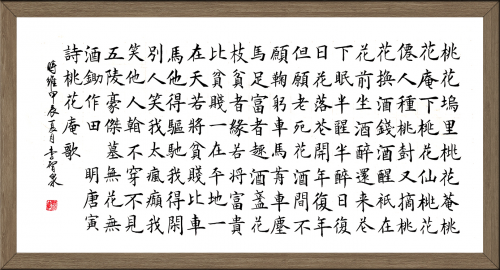 桃花塢里桃花菴桃
花庵下桃花仙桃花
僊人種桃封又摘桃
花換酒錢酒醒祇在
花前坐酒醉還来尽
下眠半醒半醉日復
日花落花開年復年
但愿老死花酒間不
願鞠躬車馬前車塵
馬足富者趣酒盞花
枝貧賤者緣若將富貴
比貧賤一在平地一
在天若將貧賤比車
馬他得驅馳我得閑
别人笑我太瘋癲我
笑他人看不穿不見
五陵豪傑墓無花無
酒鋤作田 明唐寅
詩桃花庵歌
時維甲辰夏月李智泉